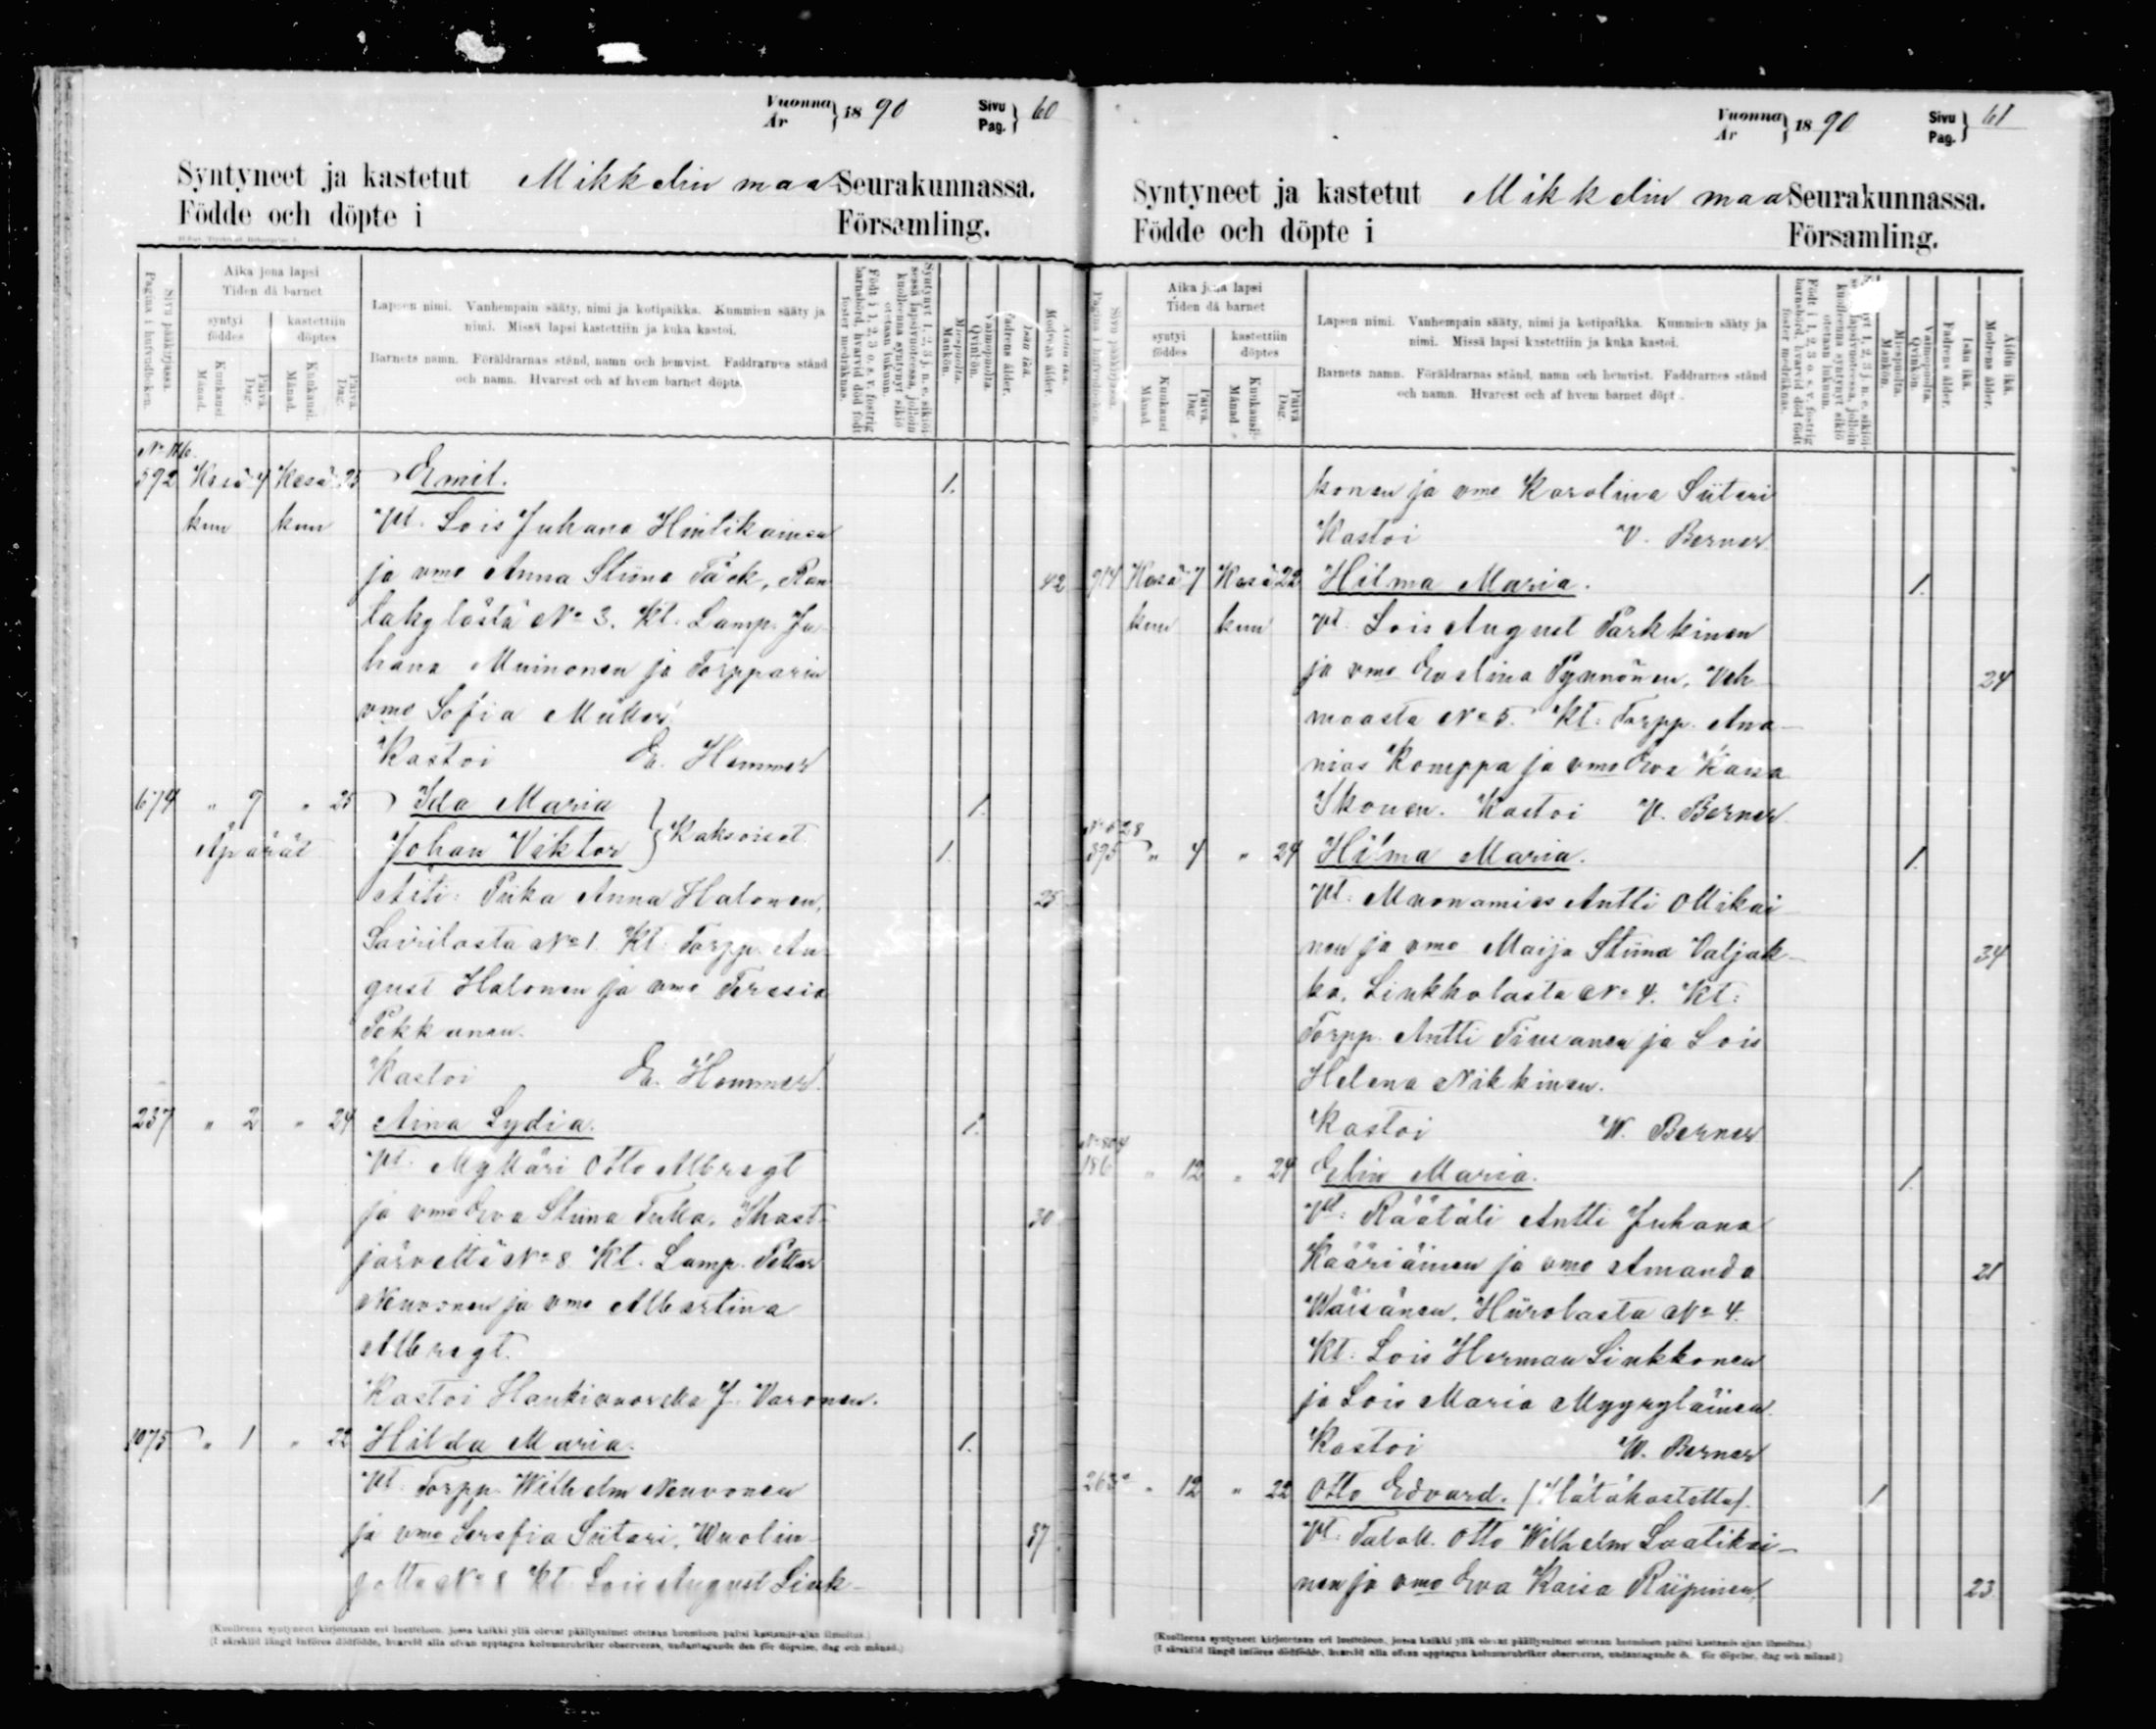 Vuonna År } 1890 Sivu Pag. } 60
Syntyneet ja kastetut Mikkelin maa Seurakunnassa.
Födde och döpte i Församling.
Sivu pääkirjassa. Pagina i hufvudboken.
Aika jona lapsi
Tiden då barnet
syntyi föddes
kastettiin döptes
Kuukausi Månad. Päivä. Dag. Kuukausi. Månad. Päivä. Dag.
Lapsen nimi. Vanhempain sääty, nimi ja kotipaikka. Kummien sääty ja
nimi. Missä lapsi kastettiin ja kuka kastoi.
Barnets namn. Föräldrarnas stånd, namn och hemvist. Faddrarnes stånd
och namn. Hvarest och af hvem barnet döpts.
Syntynyt 1, 2, 3 j. n. e. sikiönä lapsivuoteessa, jolloin kuolleena syntynyt sikiö otetaan lukuun.
Född i 1, 2, 3 o. s. v. fostrig barnsbörd, hvarvid död född foster medräknas.
Miespuolta. Mankön.
Vaimopuolta. Qvinkön.
Isän ikä. Fadrens ålder.
Äidin ikä. Modrens ålder.
592 Kesä 4 Kesä 25 Emil. 1.
kuu kuu Vt. Lois Juhana Hintikainen
ja vmo Anna Stiina Täck, Ran
takylästä No 3. Kt. Lamp. Ju 42
hana Muinonen ja Torpparin
vmo Sofia Müller.
Kastoi E. Hammer
674 " 9 " 25 Ida Maria 1.
Äpärät Johan Viktor } Kaksoiset. 1.
Äiti: Piika Anna Halonen, 25
Sairilasta No 1. Kt. Torpp. Au
gust Halonen ja vmo Teresia
Pekkanen.
Kastoi E. Hammer.
237 " 2 " 24 Aina Lydia. 1.
Vt. Mylläri Otto Albregt
ja vmo Eva Stiina Tulla, Ihast- 30
järveltä No 8. Kt. Lamp. Petter
Neuvonen ja vmo Albertina
Albregt.
Kastoi Haukivuorella J. Varonen.
1075 " 1 " 22 Hilda Maria. 1.
Vt. Torpp. Wilhelm Neuvonen
ja vmo Serafia Siitari, Wuolin- 37
Kt. Lois August Link-
(Kuolleena syntyneet kirjoitetaan eri luetteloon, jossa kaikki yllä olevat päällysnimet otetaan huomioon paitsi kastamis-ajan ilmoitus.)
(I särskild längd införes dödfödde, hvarvid alla ofvan upptagna kolumnrubriker observeras, undantagande den för döpelse, dag och månad.)
Vuonna År } 1890 Sivu Pag. } 61
Syntyneet ja kastetut Mikkelin maa Seurakunnassa.
Födde och döpte i Församling.
Sivu pääkirjassa. Pagina i hufvudboken.
Aika jona lapsi
Tiden då barnet
syntyi föddes
kastettiin döptes
Kuukausi Månad. Päivä. Dag. Kuukausi. Månad. Päivä Dag.
Lapsen nimi. Vanhempain sääty, nimi ja kotipaikka. Kummien sääty ja
nimi. Missä lapsi kastettiin ja kuka kastoi.
Barnets namn. Föräldrarnas stånd, namn och hemvist. Faddrarnes stånd
och namn. Hvarest och af hvem barnet döpt.
Miespuolta. Mankön.
Vaimopuolta. Qvinkön.
Isän ikä. Fadrens ålder.
Äidin ikä. Modrens ålder.
konen ja vmo Karolina Siitari
Kastoi V. Berner.
914 Kesä 7 Kesä 22 Hilma Maria. 1.
kuu kuu Vt. Lois August Parkkinen
ja vmo Evelina Pynnönen, Veh 24
maasta No 5. Kt: Torpp. Ana-
nias Komppa ja vmo Eva Kaisa
Ikonen. Kastoi V. Berner.
No 628
395 " 4 " 24 Hilma Maria. 1.
Vt. Muonamies Antti Ollikai
nen ja vmo Maija Stiina Valjak- 34
ka, Linkkolasta No 4. Kt:
Torpp. Antti Tiusanen ja Lois
Helena Nikkinen.
Kastoi W. Berner
No 804
186 " 12 " 24 Elin Maria. 1.
Vt: Räätäli Antti Juhana
Kääriäinen ja vmo Amanda 21
Wäisänen, Hiirolasta No 4.
Kt. Lois Herman Linkkonen
ja Lois Maria Myyryläinen.
Kastoi W. Berner
" 12 " 22 Otto Edvard. (Hätäkastettu). 1
Vt. Taloll. Otto Wilhelm Laatikai-
nen ja vmo Eva Kaisa Riipinen, 23
(Kuolleena syntyneet kirjoitetaan eri luetteloon, jossa kaikki yllä olevat päällysnimet otetaan huomioon paitsi kastamis-ajan ilmoitus.)
(I särskild längd införes dödfödde, hvarvid alla ofvan upptagna kolumnrubriker observeras, undantagande för döpelse, dag och månad)